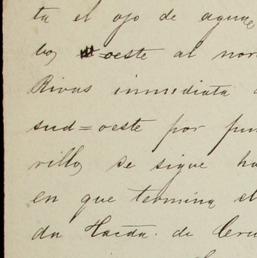 ta el ojo de agua
bo, oeste al nor
Rivas inmediata a
sud=oeste por pun
rillo, se sigue ha
en que termina el
da Hacda. de Cru